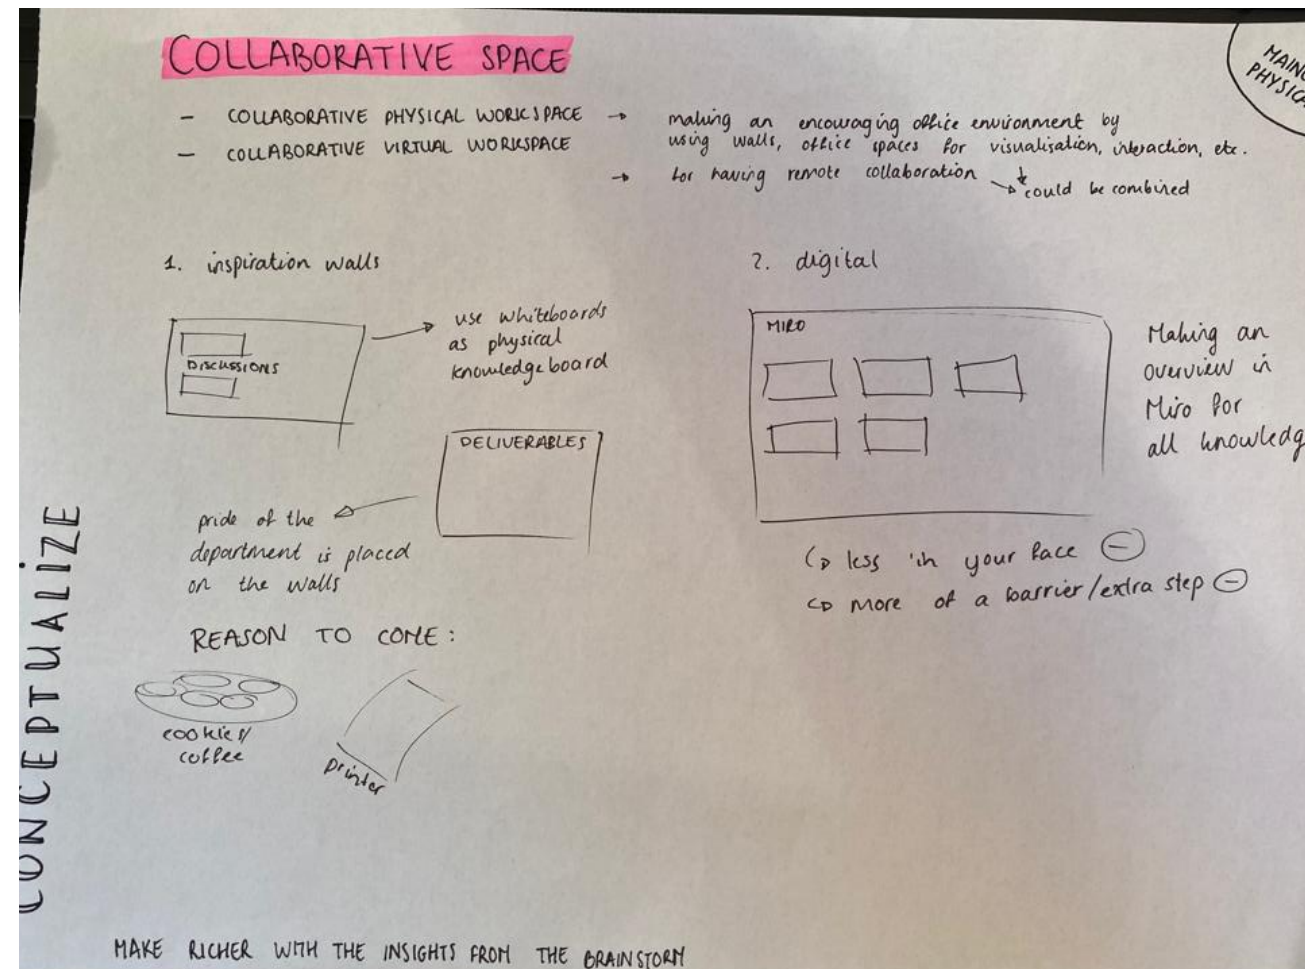 COLLABORATIVE SPACE
- COLLABORATIVE PHYSICAL WORKSPACE → making an encouraging office environment by
using walls, office spaces for visualisation, interaction, etc.
- COLLABORATIVE VIRTUAL WORKSPACE
→ for having remote collaboration → could be combined
PHYSICA
1. inspiration walls
DISCUSSIONS
→ use whiteboards
as physical
knowledgeboard
DELIVERABLES
pride of the
department is placed
on the walls
REASON TO COME:
cookies/
coffee
printer
2. digital
MIRO
Making an
overview in
Miro for
all knowledg
↳ less in your face ⊖
↳ more of a barrier/extra step ⊖
CONCEPTUALIZE
MAKE RICHER WITH THE INSIGHTS FROM THE BRAINSTORM